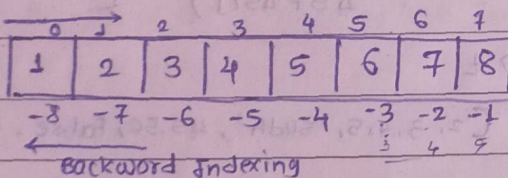 0 1 2 3 4 5 6 7
1 2 3 4 5 6 7 8
-8 -7 -6 -5 -4 -3 -2 -1
3 4 5
Backword Indexing